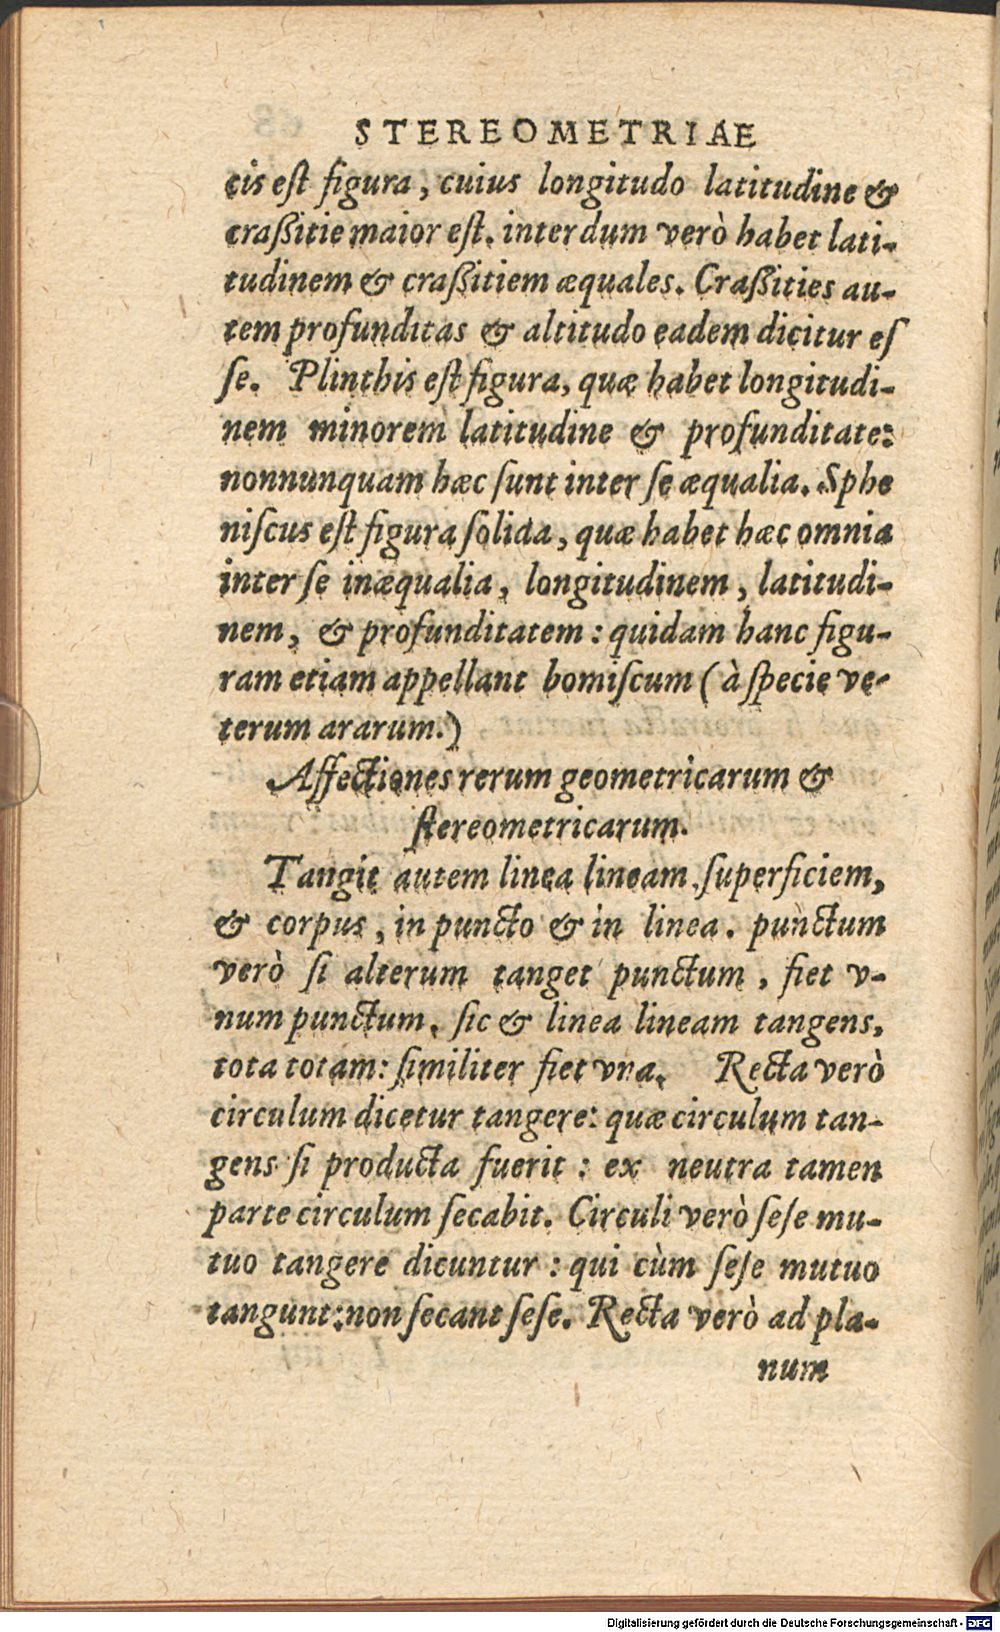 STEREOMETRIAE
cis eſt figura, cuius longitudo latitudine &
craſsitie maior eſt. interdum verò habet lati-
tudinem & craſsitiem æquales. Craſsities au-
tem profunditas & altitudo eadem dicitur eſ
ſe. Plinthis eſt figura, quæ habet longitudi-
nem minorem latitudine & profunditate:
nonnunquam hæc ſunt inter ſe æqualia. Sphe
niſcus eſt figura ſolida, quæ habet hæc omnia
inter ſe inæqualia, longitudinem, latitudi-
nem, & profunditatem: quidam hanc figu-
ram etiam appellant bomiſcum (à ſpecie ve-
terum ararum.)
Affectiones rerum geometricarum &
ſtereometricarum.
Tangit autem linea lineam, ſuperficiem,
& corpus, in puncto & in linea. punctum
verò ſi alterum tanget punctum, fiet v-
num punctum. ſic & linea lineam tangens,
tota totam: ſimiliter fiet vna. Recta verò
circulum dicetur tangere: quæ circulum tan-
gens ſi producta fuerit: ex neutra tamen
parte circulum ſecabit. Circuli verò ſeſe mu-
tuo tangere dicuntur: qui cùm ſeſe mutuo
tangunt: non ſecant ſeſe. Recta verò ad pla-
num
Digitalisierung gefördert durch die Deutsche Forschungsgemeinschaft - DFG